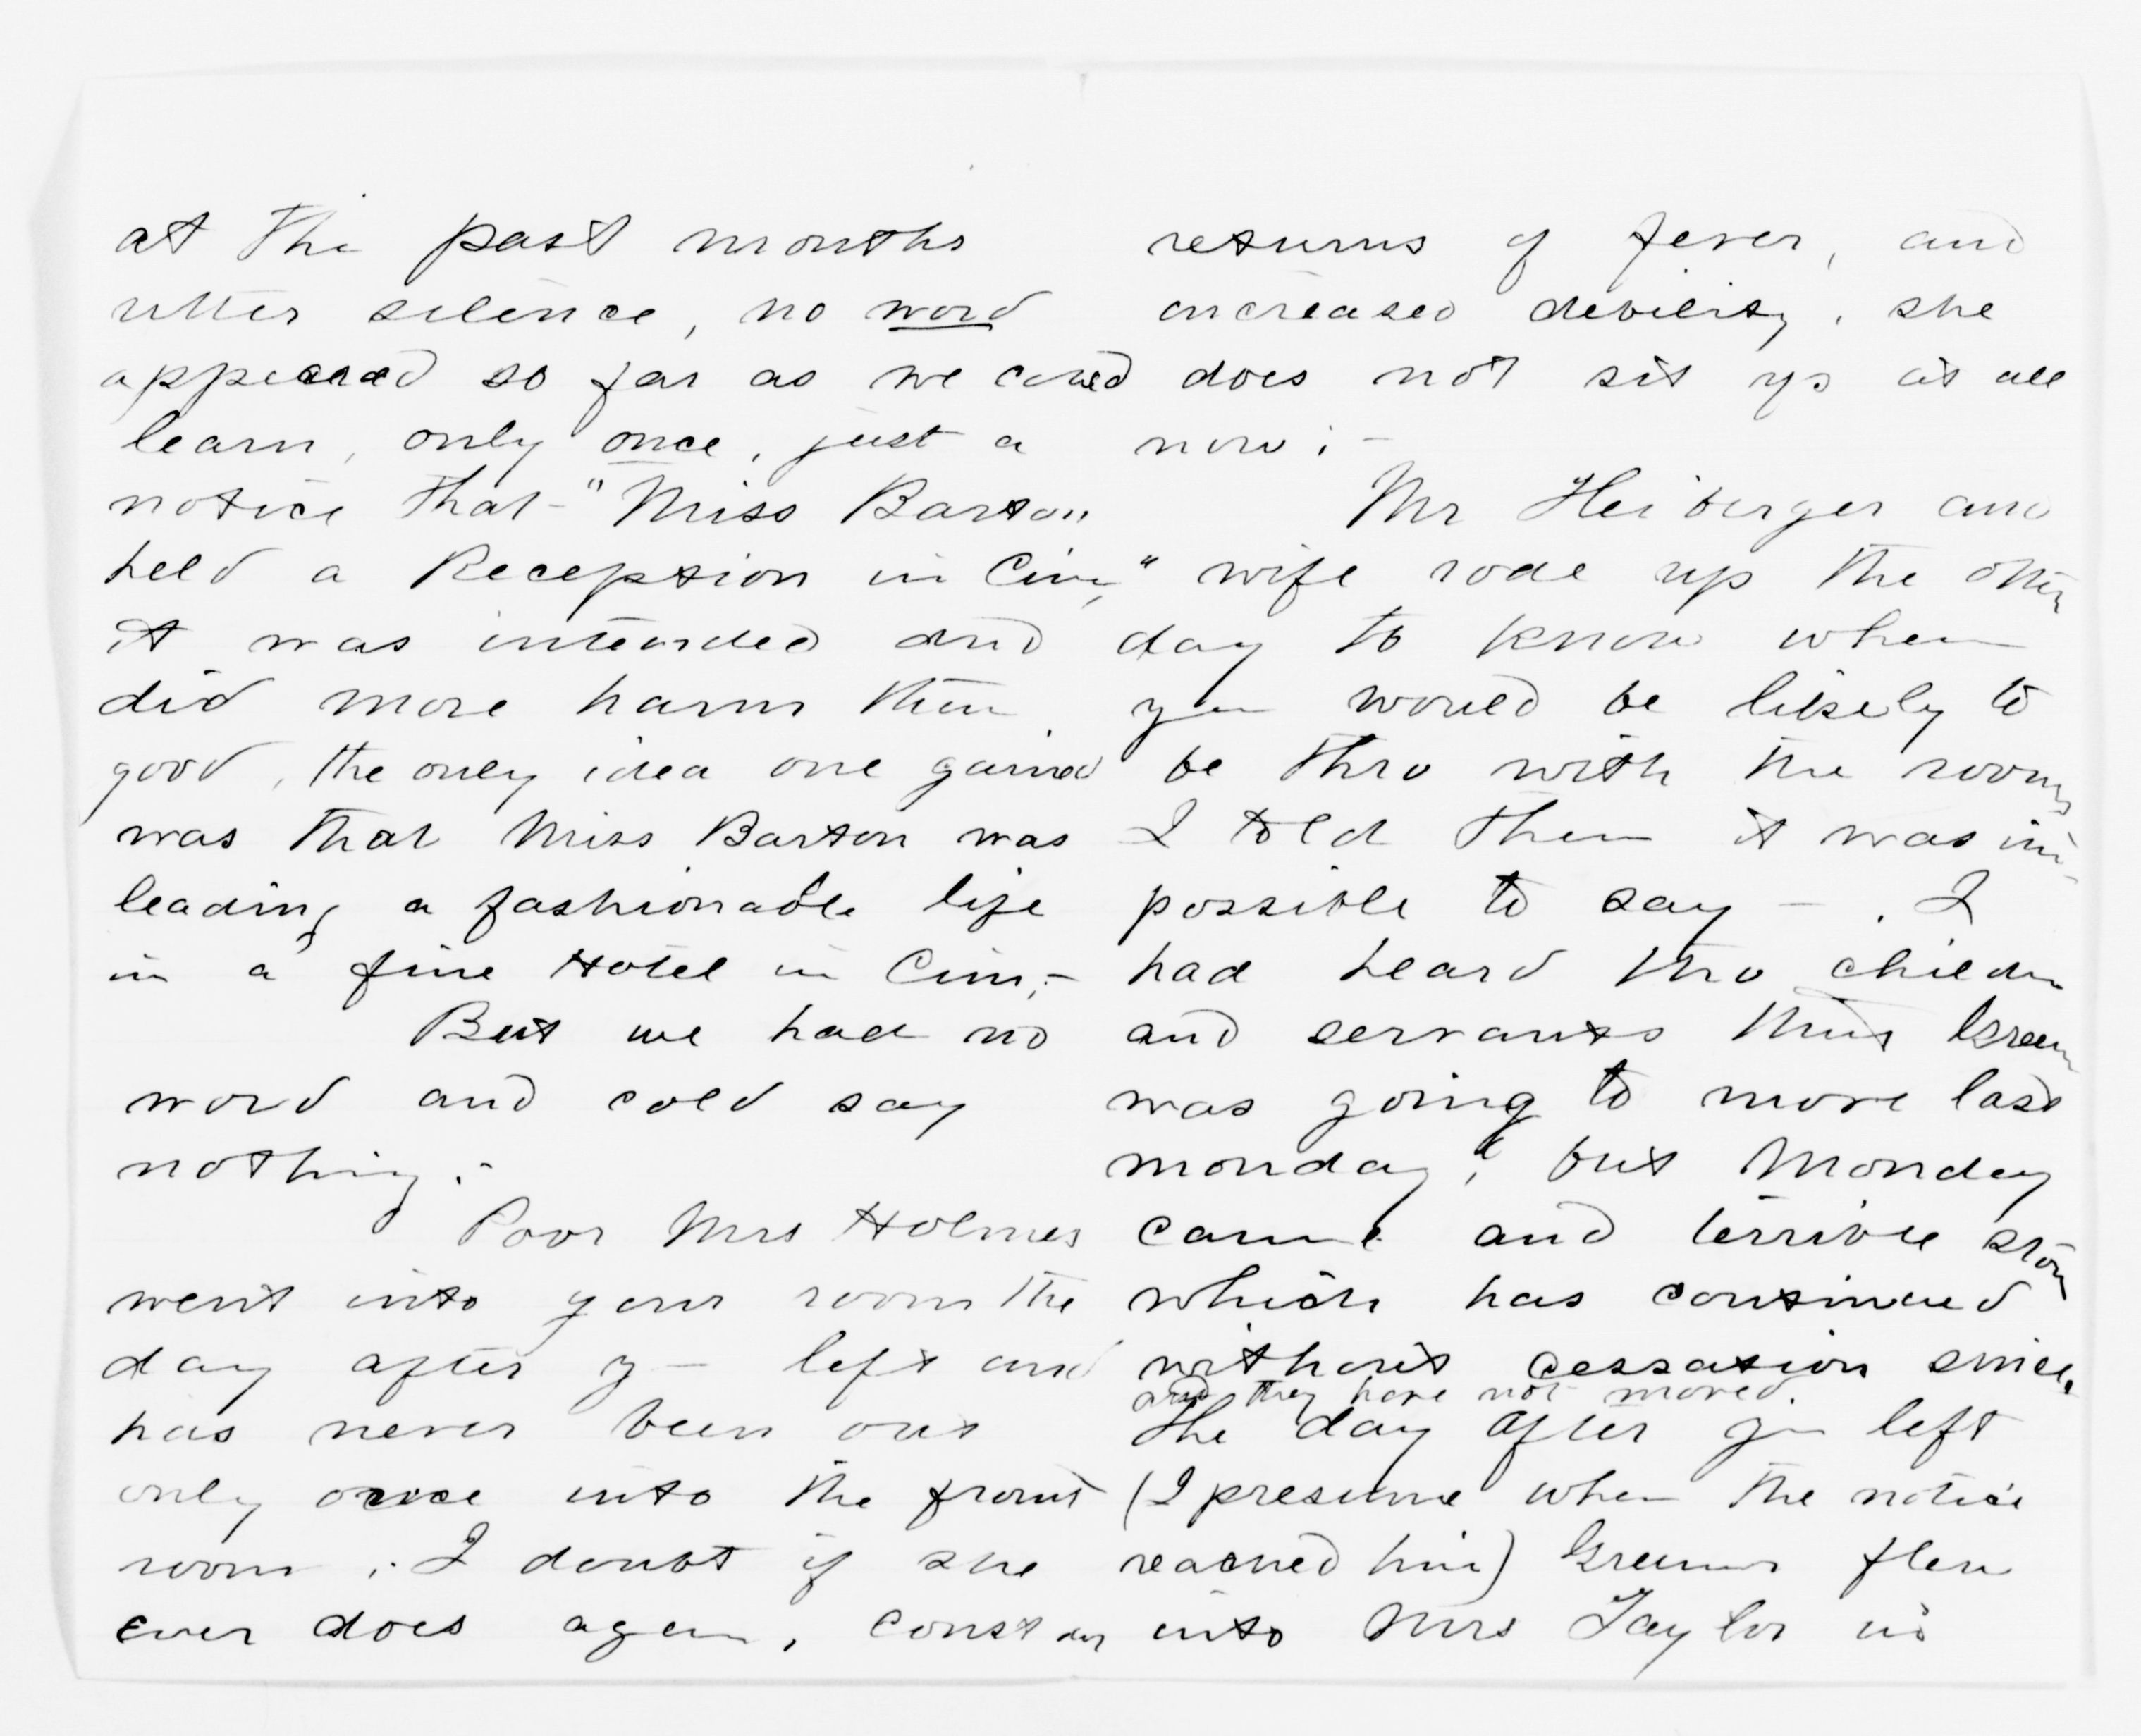 at the past months
utter silence, no word
appeared so far as we could
learn, only once, just a
notice that - "Miss Barton
held a Reception in Cin,"
it was intended and
did more harm than
good, the only idea one gained
was that Miss Barton was
leading a fashionable life
in a fine Hotel in Cin;-
But we had no
word and cold say
nothing.-
Poor Mrs Holmes
went into your room the
day after y— left and
has never been out
only once into the front
room ; I doubt if she
ever does again, constan
returns of fever, and
increased debility, she
does not sit up at all
now :-
Mr Heiberger and
wife rode up the other
day to know when
you would be likely to
be thro with the rooms
I told them it was im-
possible to say - . I
had heard thro children
and servants that Green
was going to move last
monday", but Monday
came and terrible storm
which has continued
without cessation since,
and they have not moved.
The day after you left
(I presume when the notice
reached him) Greener flew
into Mrs Taylor in